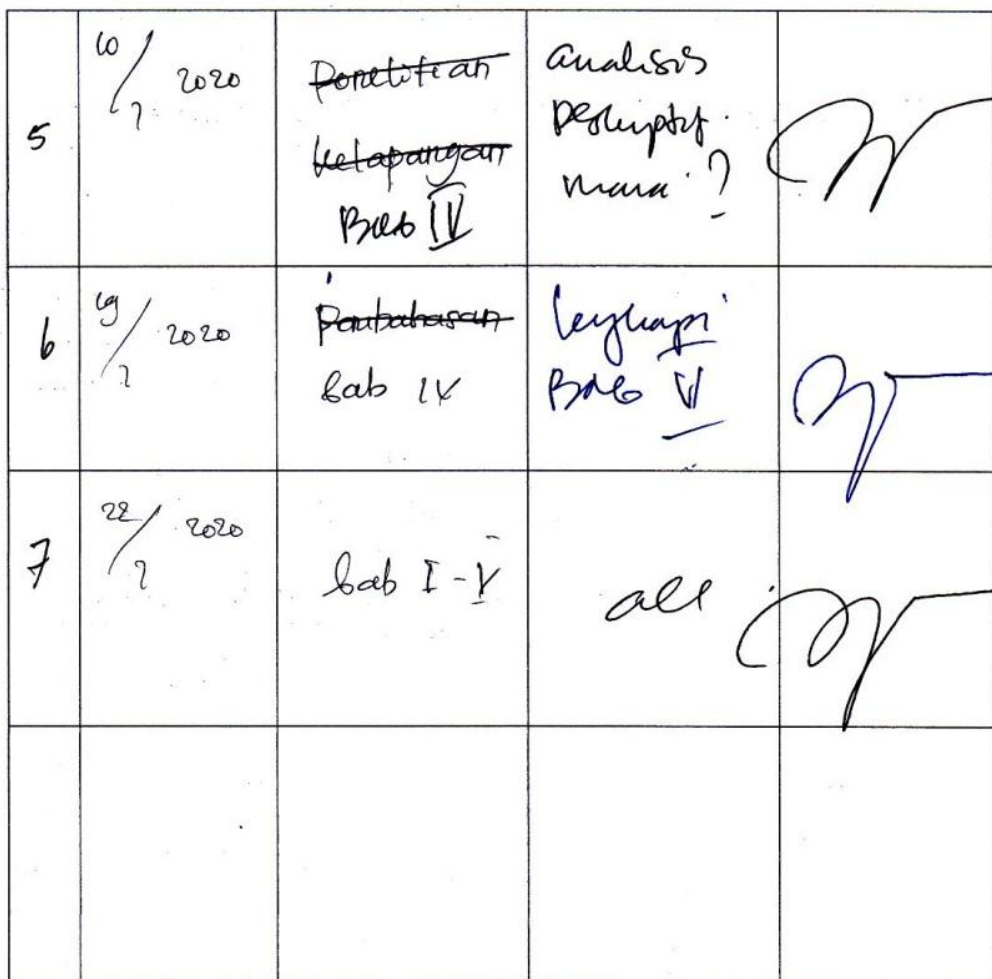 5
10/7 2020
Penelitian
kelapangan
Bab IV
analisis
Deskriptif
mana ?
6
19/7 2020
Pembahasan
bab IV
lengkapi
Bab V
7
22/7 2020
bab I - V